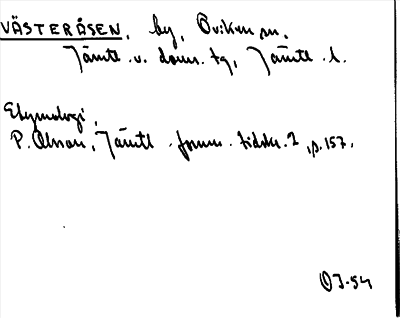 VÄSTERÅSEN, by, Oviken sn.
Jämtl. v. doms. tg, Jämtl. l.
Etymologi,
P. Olsson, Jämtl. fornm. tidskr. 2, p. 157.
OJ-54